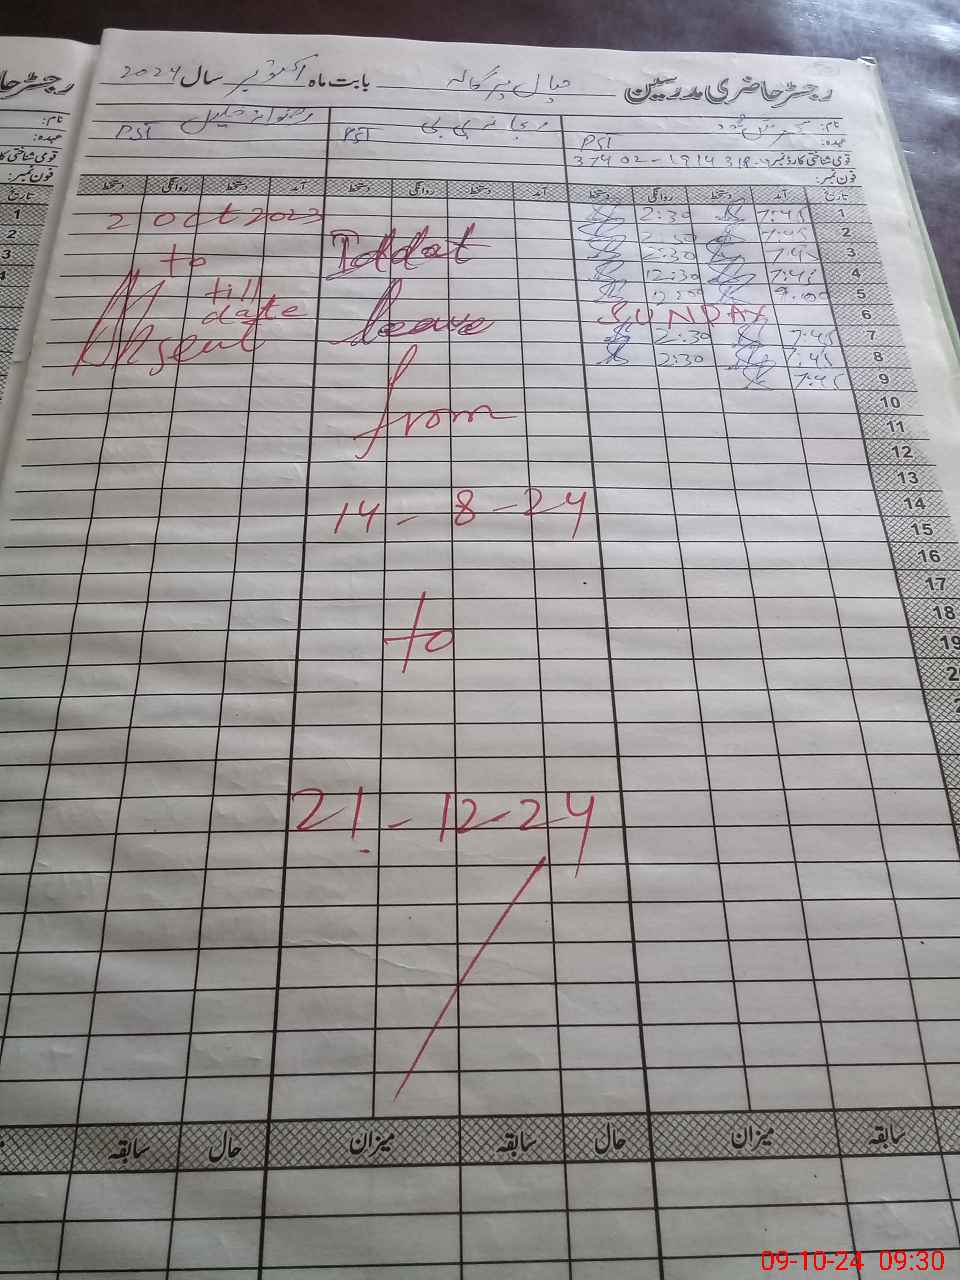 رجسٹر حاضری مدرسین بابت ماہ اکتوبر سال 2024
نام:
عہدہ: PST PST PST
قومی شناختی کارڈ نمبر: 37402-1914318
فون نمبر:
تاریخ آمد دستخط روانگی دستخط آمد دستخط روانگی دستخط آمد دستخط روانگی دستخط
1 7:45 2:30
2 7:45 2:30
3 7:45 2:30
4 7:45 12:30
5
6 SUNDAY
7 7:45 2:30
8 7:45 2:30
9 7:45
10
11
12
13
14
15
16
17
18
19
Iddat
leave
from
14-8-24
to
21-12-24
2 Oct 2023
to
till
date
Absent
سابقہ میزان حال سابقہ میزان حال سابقہ
رجسٹر حا
عہدہ:
فون نمبر:
تاریخ
1
2
3
4
09-10-24 09:30